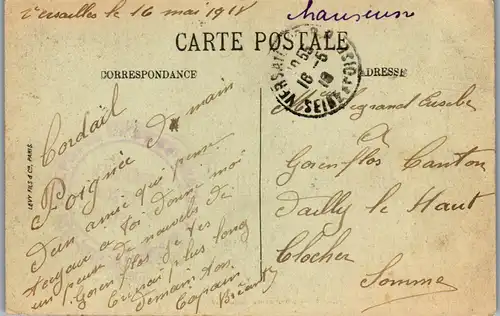 Versailles le 16 mai 1918
CARTE POSTALE
CORRESPONDANCE
ADRESSE
LEVY FILS & Cie, PARIS
VERSAILLES
16 - 5
18
SEINE
OISE
Cordail
Poignée de main
D'un amie qui pense
toujour a toi donne moi
un peuse de nouvels de
Gorenflos je tes
plus long
Demain ton
Copain
Legrand Eusebe
A
Gorenflos Canton
Dailly le Haut
Clocher
Somme